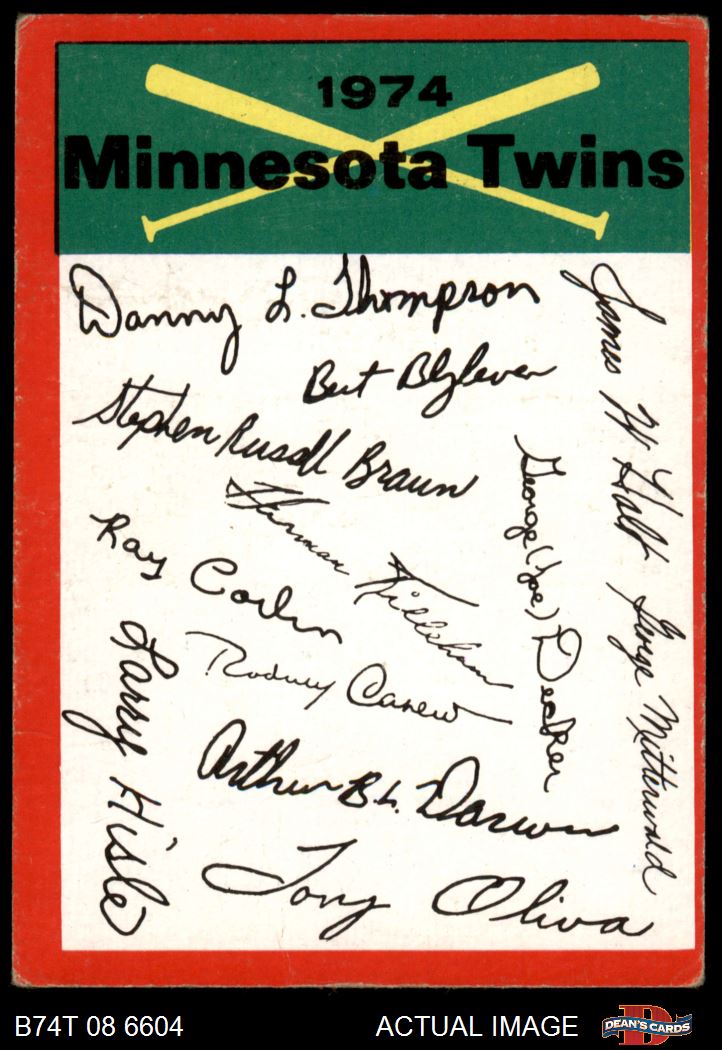 1974
Minnesota Twins
Danny L. Thompson
Bert Blyleven
James W Holt
Stephen Russell Braun
George (Joe) Decker
Harman Killebrew
Ray Corbin
George Mitterwald
Rodney Carew
Larry Hisle
Arthur B L. Darwin
Tony Oliva
B74T 08 6604
ACTUAL IMAGE
D
DEAN'S CARDS